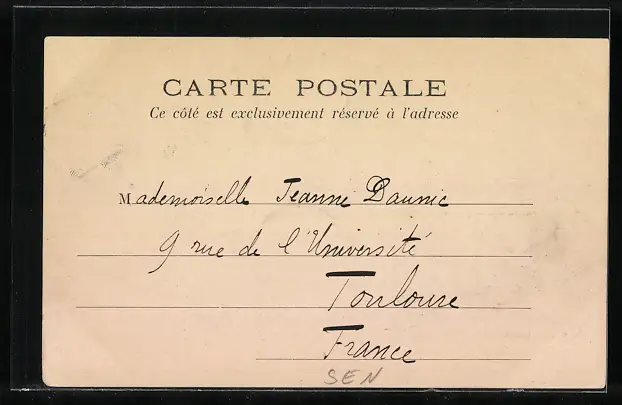 CARTE POSTALE
Ce côté est exclusivement réservé à l'adresse
Mademoiselle Jeanne Daunic
9 rue de l'Université
Toulouse
France
SEN